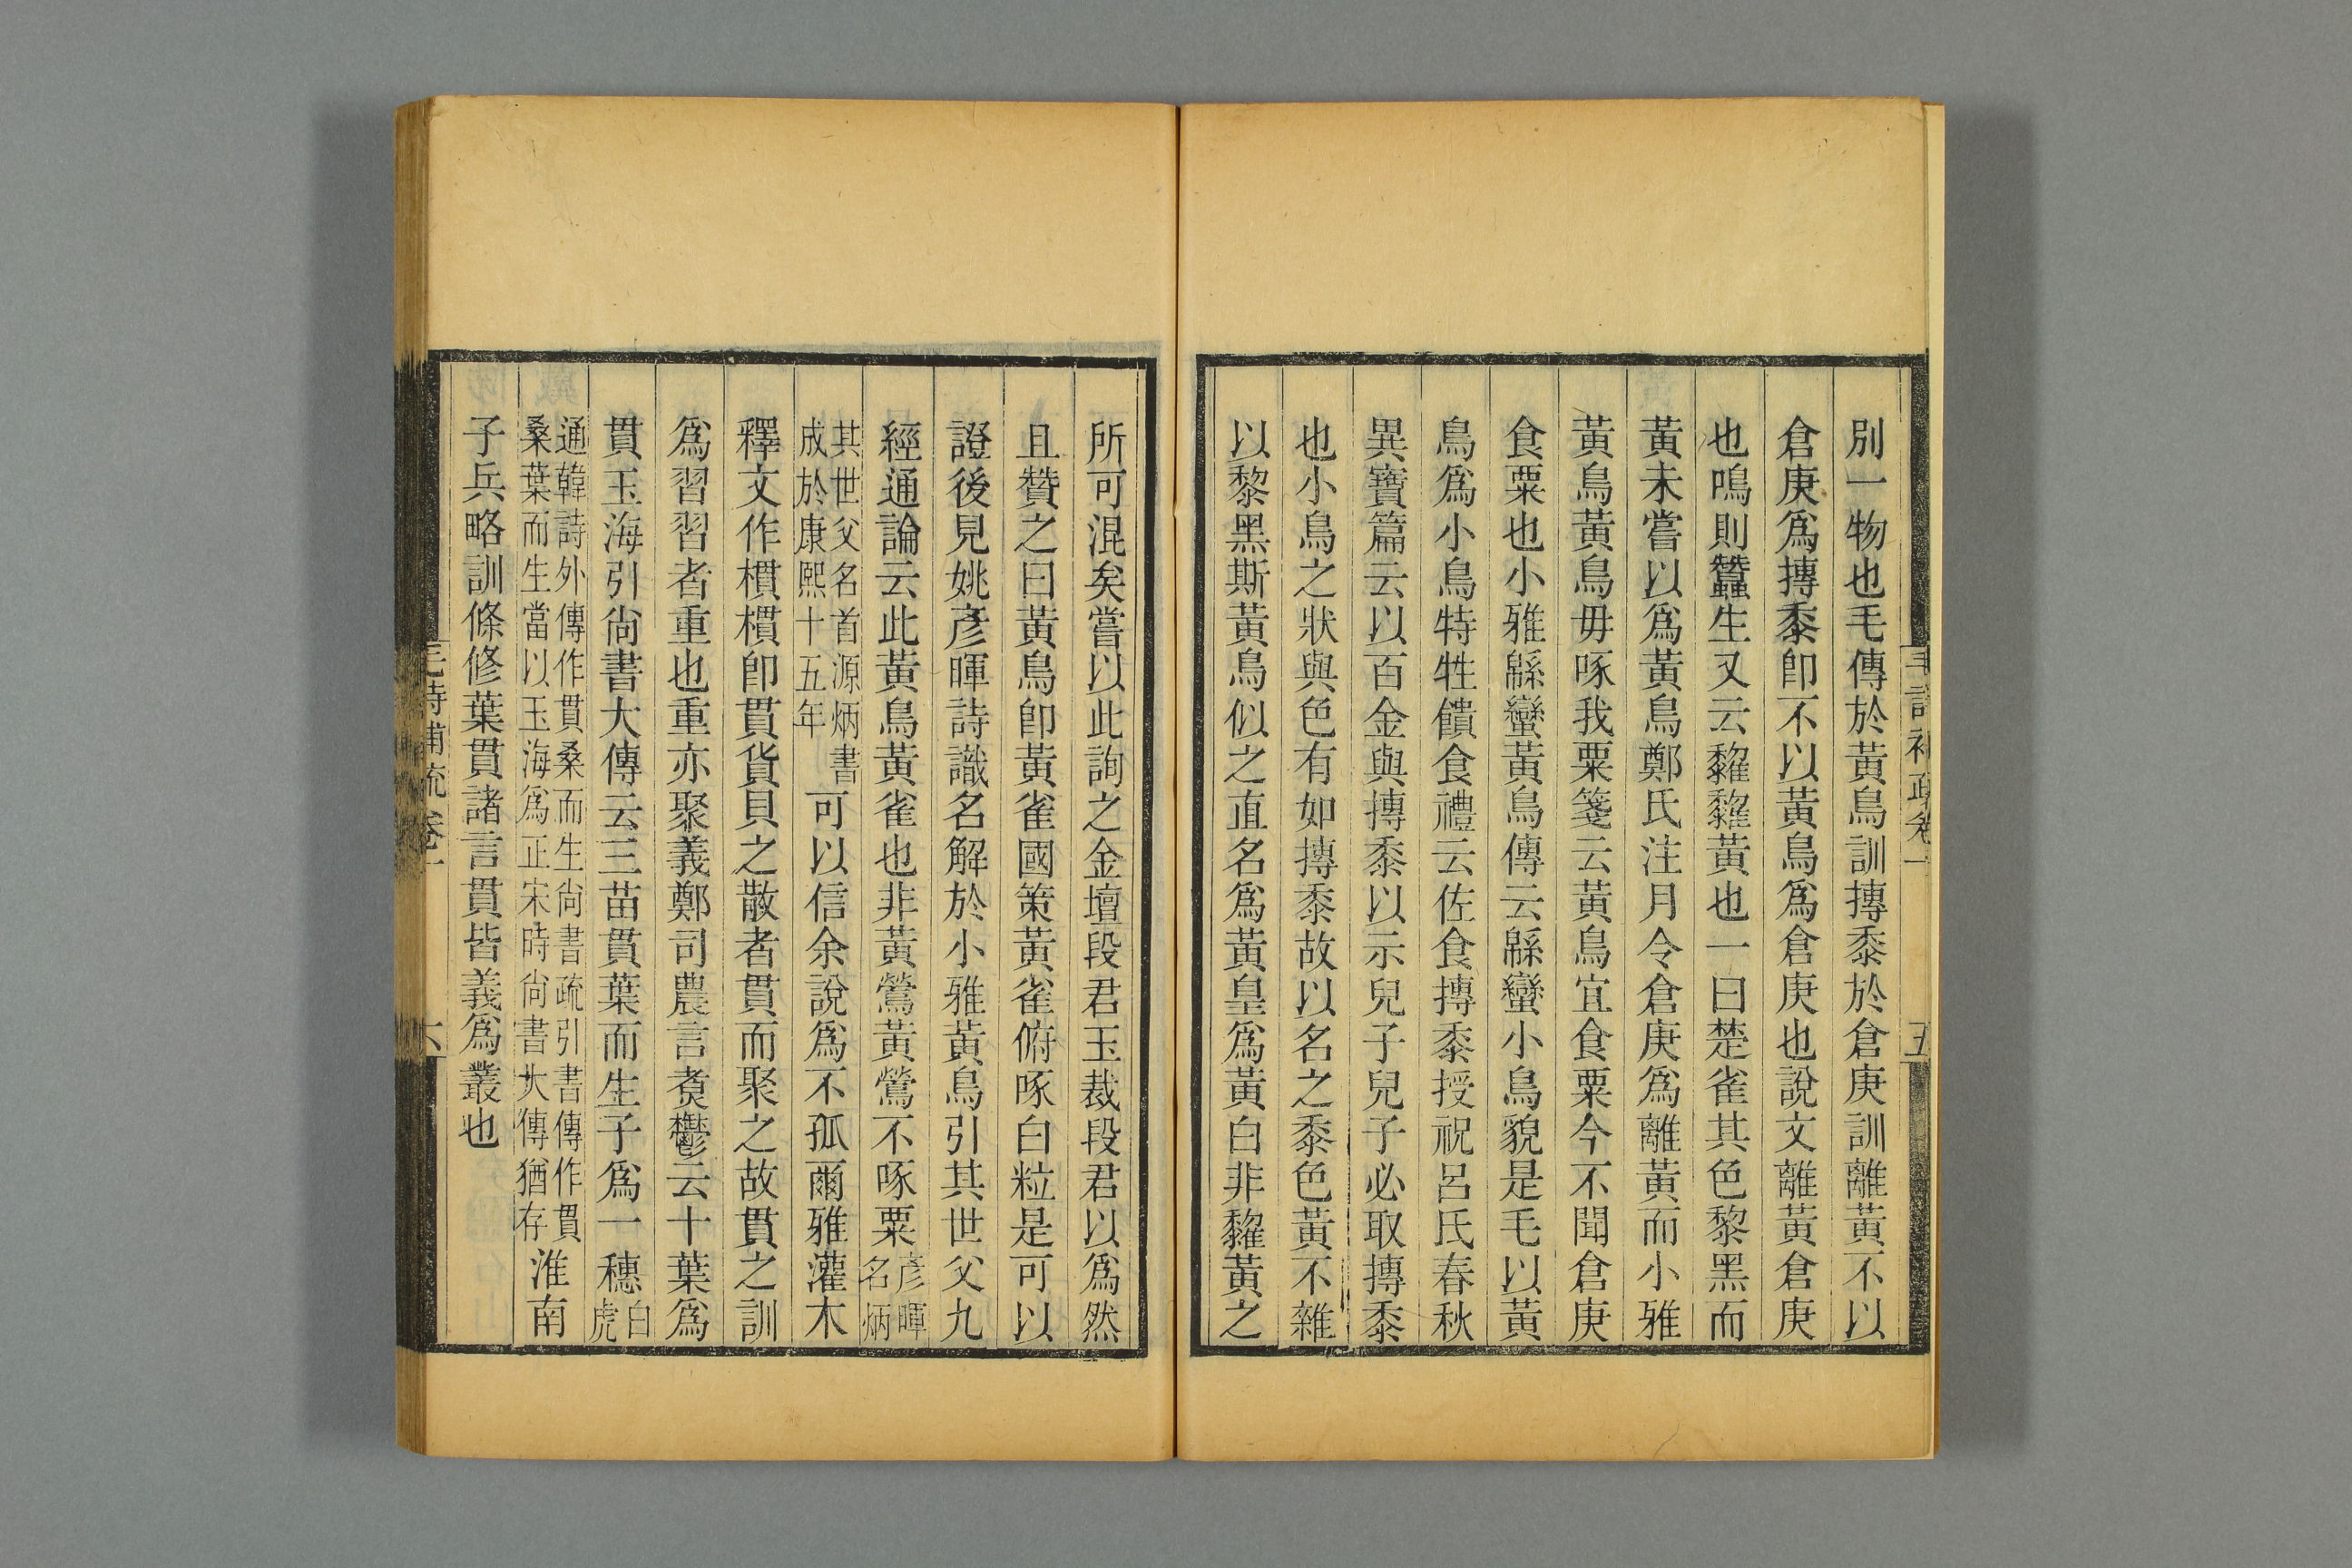 毛詩補疏卷一
五
別一物也毛傳於黃鳥訓摶黍於倉庚訓離黃不以
倉庚爲摶黍卽不以黃鳥爲倉庚也說文離黃倉庚
也鳴則蠶生又云䵩䵩黃也一曰楚雀其色黎黑而
黃未嘗以爲黃鳥鄭氏注月令倉庚爲離黃而小雅
黃鳥黃鳥毋啄我粟箋云黃鳥宜食粟今不聞倉庚
食粟也小雅緜蠻黃鳥傳云緜蠻小鳥貌是毛以黃
鳥爲小鳥特牲饋食禮云佐食摶黍授祝呂氏春秋
異寶篇云以百金與摶黍以示兒子兒子必取摶黍
也小鳥之狀與色有如摶黍故以名之黍色黃不雜
以黎黑斯黃鳥似之直名爲黃皇爲黃白非䵩黃之
所可混矣嘗以此詢之金壇段君玉裁段君以爲然
且贊之曰黃鳥卽黃雀國策黃雀俯啄白粒是可以
證後見姚彥暉詩識名解於小雅黃鳥引其世父九
經通論云此黃鳥黃雀也非黃鶯黃鶯不啄粟彥暉名炳
其世父名首源炳書成於康熙十五年可以信余說爲不孤爾雅灌木
釋文作樌樌卽貫貨貝之散者貫而聚之故貫之訓
爲習習者重也重亦聚義鄭司農言煑鬱云十葉爲
貫玉海引尙書大傳云三苗貫葉而生子爲一穗白虎
通韓詩外傳作貫桑而生尙書疏引書傳作貫桑葉而生當以玉海爲正宋時尙書大傳猶存淮南
子兵略訓條修葉貫諸言貫皆義爲叢也
毛詩補疏卷一
六